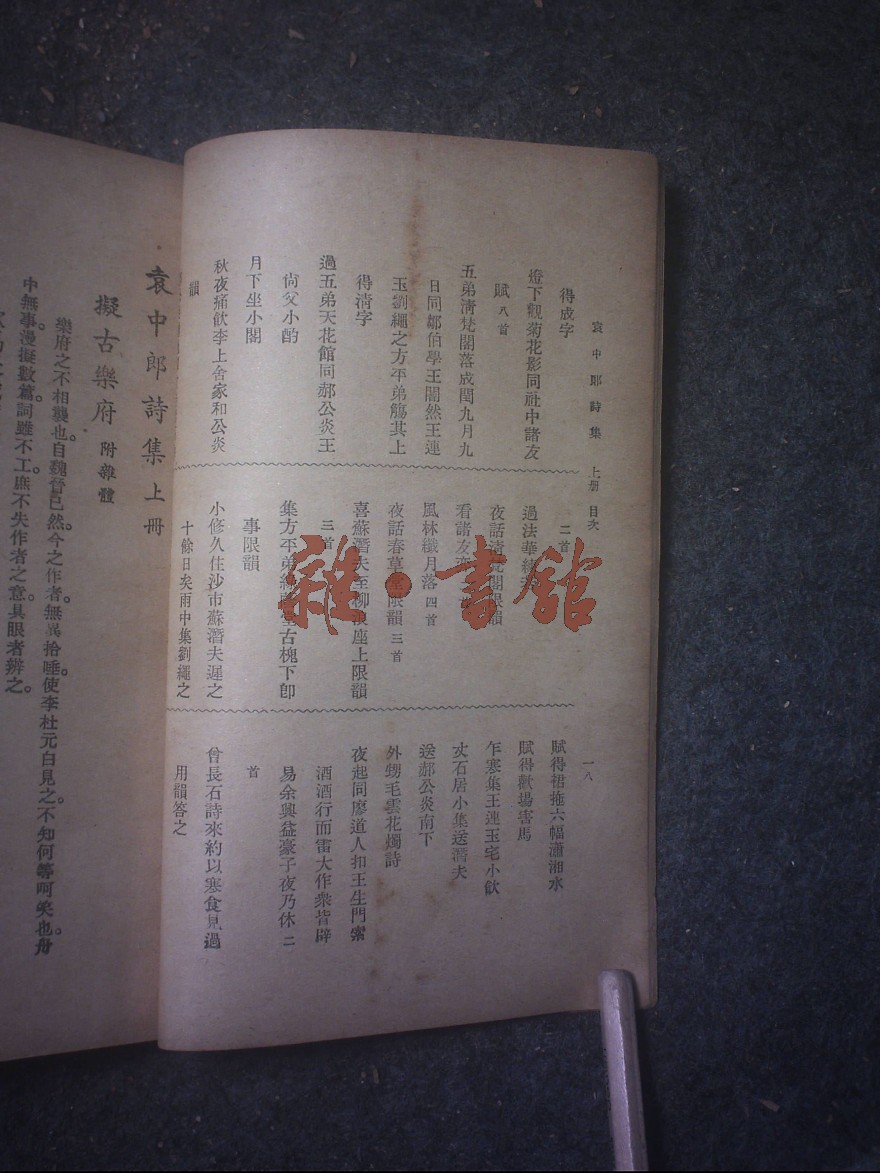 袁中郎詩集 上册 目次
一八
得成字
燈下觀菊花影同社中諸友
賦 八首
五弟淸梵閣落成閏九月九
日同鄒伯學王闇然王連
玉劉繩之方平弟觴其上
得淸字
過五弟天花館同郝公炎王
尙父小酌
月下坐小閣
秋夜痛飮李上舍家和公炎
韻
二首
過法華
夜話淸梵閣限韻
看諸友
風林纖月落 四首
夜話春草堂限韻 三首
喜蘇潛夫至柳浪座上限韻
三首
集方平弟 堂古槐下卽
事限韻
小修久住沙市蘇潛夫遲之
十餘日矣雨中集劉繩之
賦得裙拖六幅瀟湘水
賦得歡場害馬
乍寒集王連玉宅小飮
丈石居小集送潛夫
送郝公炎南下
外甥毛雲花燭詩
夜起同廖道人扣王生門索
酒酒行而雷大作衆皆辟
易余興益豪子夜乃休 二
首
曾長石詩來約以寒食見過
用韻答之
袁中郎詩集 上冊
擬古樂府 附雜體
樂府之不相襲也。自魏晉已然。今之作者。無異拾唾。使李杜元白見之。不知何等呵笑也。舟
中無事。漫擬數篇。詞雖不工。庶不失作者之意。具眼者辨之。
雜·書館